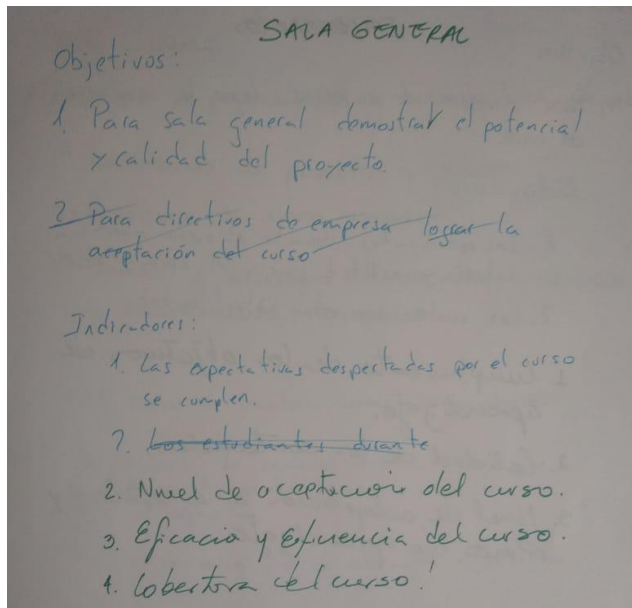 SALA GENERAL
Objetivos:
1. Para sala general demostrar el potencial
y calidad del proyecto.
2 Para directivos de empresa lograr la
aceptación del curso
Indicadores:
1. Las expectativas despertadas por el curso
se cumplen.
2. Los estudiantes durante
2. Nivel de aceptacion del curso.
3. Eficacia y Eficiencia del curso.
4. Cobertura del curso!